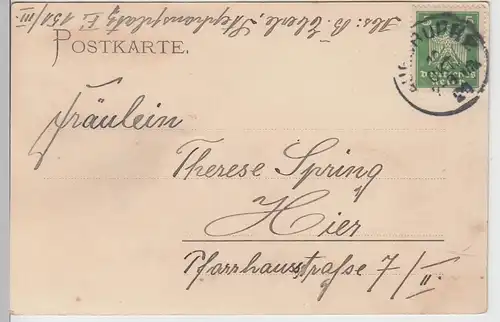 Abs: B. Eberle, Stephansplatz E 151/III.
POSTKARTE.
5 5
Deutsches Reich
Fräulein
Therese Spring
Hier
Pfarrhausstraße 7/II.